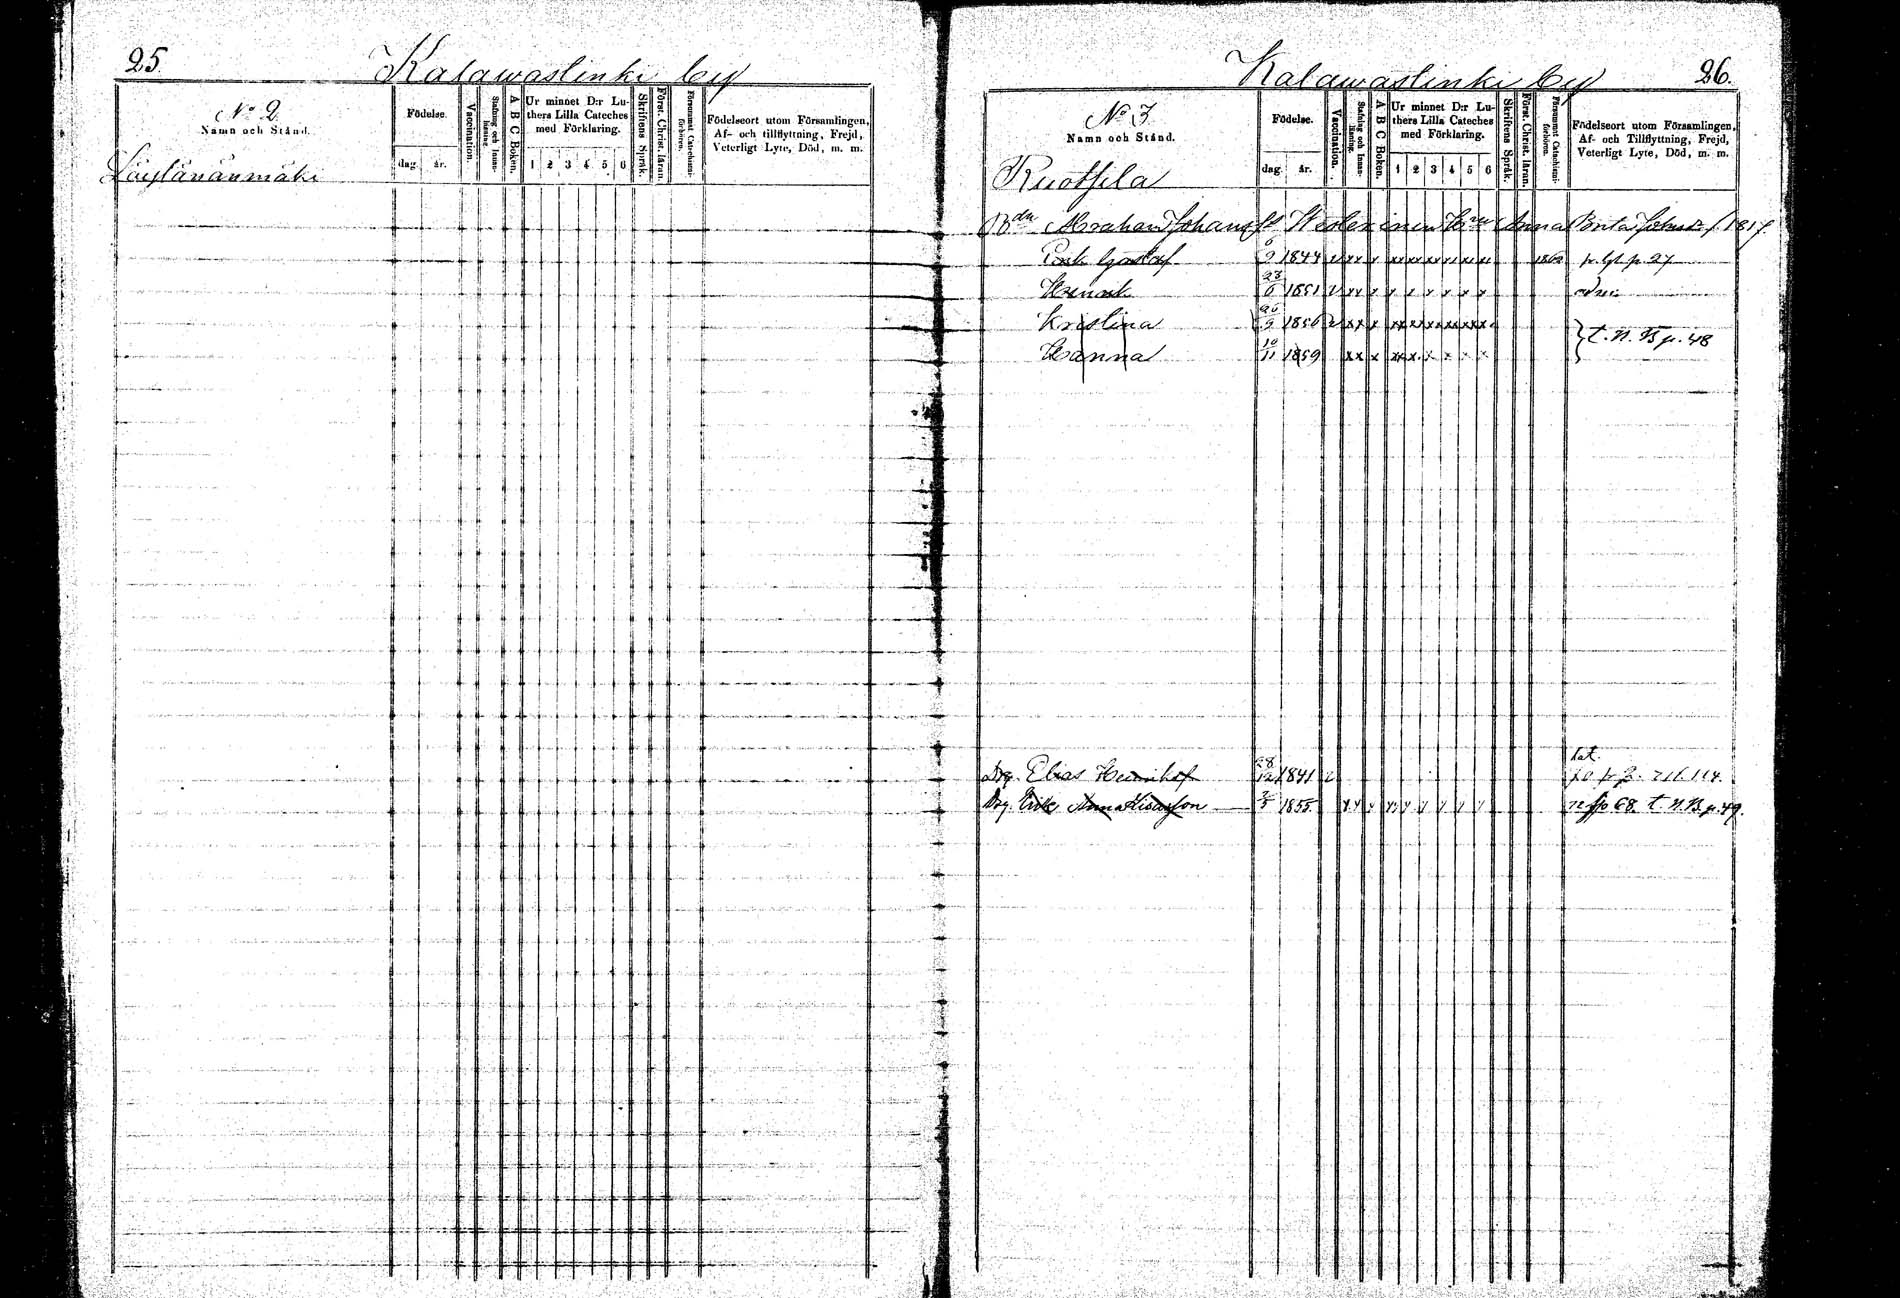 25.
Kalawaslinki by
No 2.
Namn och Stånd.
Födelse.
dag. år.
Vaccination.
Stafning och Innanläsning.
A B C Boken.
Ur minnet D:r Lu-
thers Lilla Cateches
med Förklaring.
1 2 3 4 5 6
Skriftens Språk.
Först. Christ. läran.
Försummat Catechismi-
förhören.
Födelseort utom Församlingen,
Af- och tillflyttning, Frejd,
Veterligt Lyte, Död, m. m.
Löylänänmäki
Kalawaslinki by
26.
No 3
Namn och Stånd.
Födelse.
dag. år.
Vaccination.
Stafning och Innanläsning.
A B C Boken.
Ur minnet D:r Lu-
thers Lilla Cateches
med Förklaring.
1 2 3 4 5 6
Skriftens Språk.
Först. Christ. läran.
Försummat Catechismi-
förhören.
Födelseort utom Församlingen,
Af- och Tillflyttning, Frejd,
Veterligt Lyte, Död, m. m.
Ruotsila
Bdn Abraham Johanss Westerinen Anna Brita f. 1817.
Erik Gustaf 6/9 1844 v xx x xx xx xx xx xx xx 1862 p. 27
Henrik 23/6 1851 v xx x x x x x x x
Kristina 26/9 1856 v xx x
Hanna 10/11 1859 xx x xx x x x x x
} t. N. B. p. 48
Drg. Elias 28/12 1841 v
Drg. Erik Anna 2/5 1855 x x x x x x x x x 68. t. N. B. p. 49.